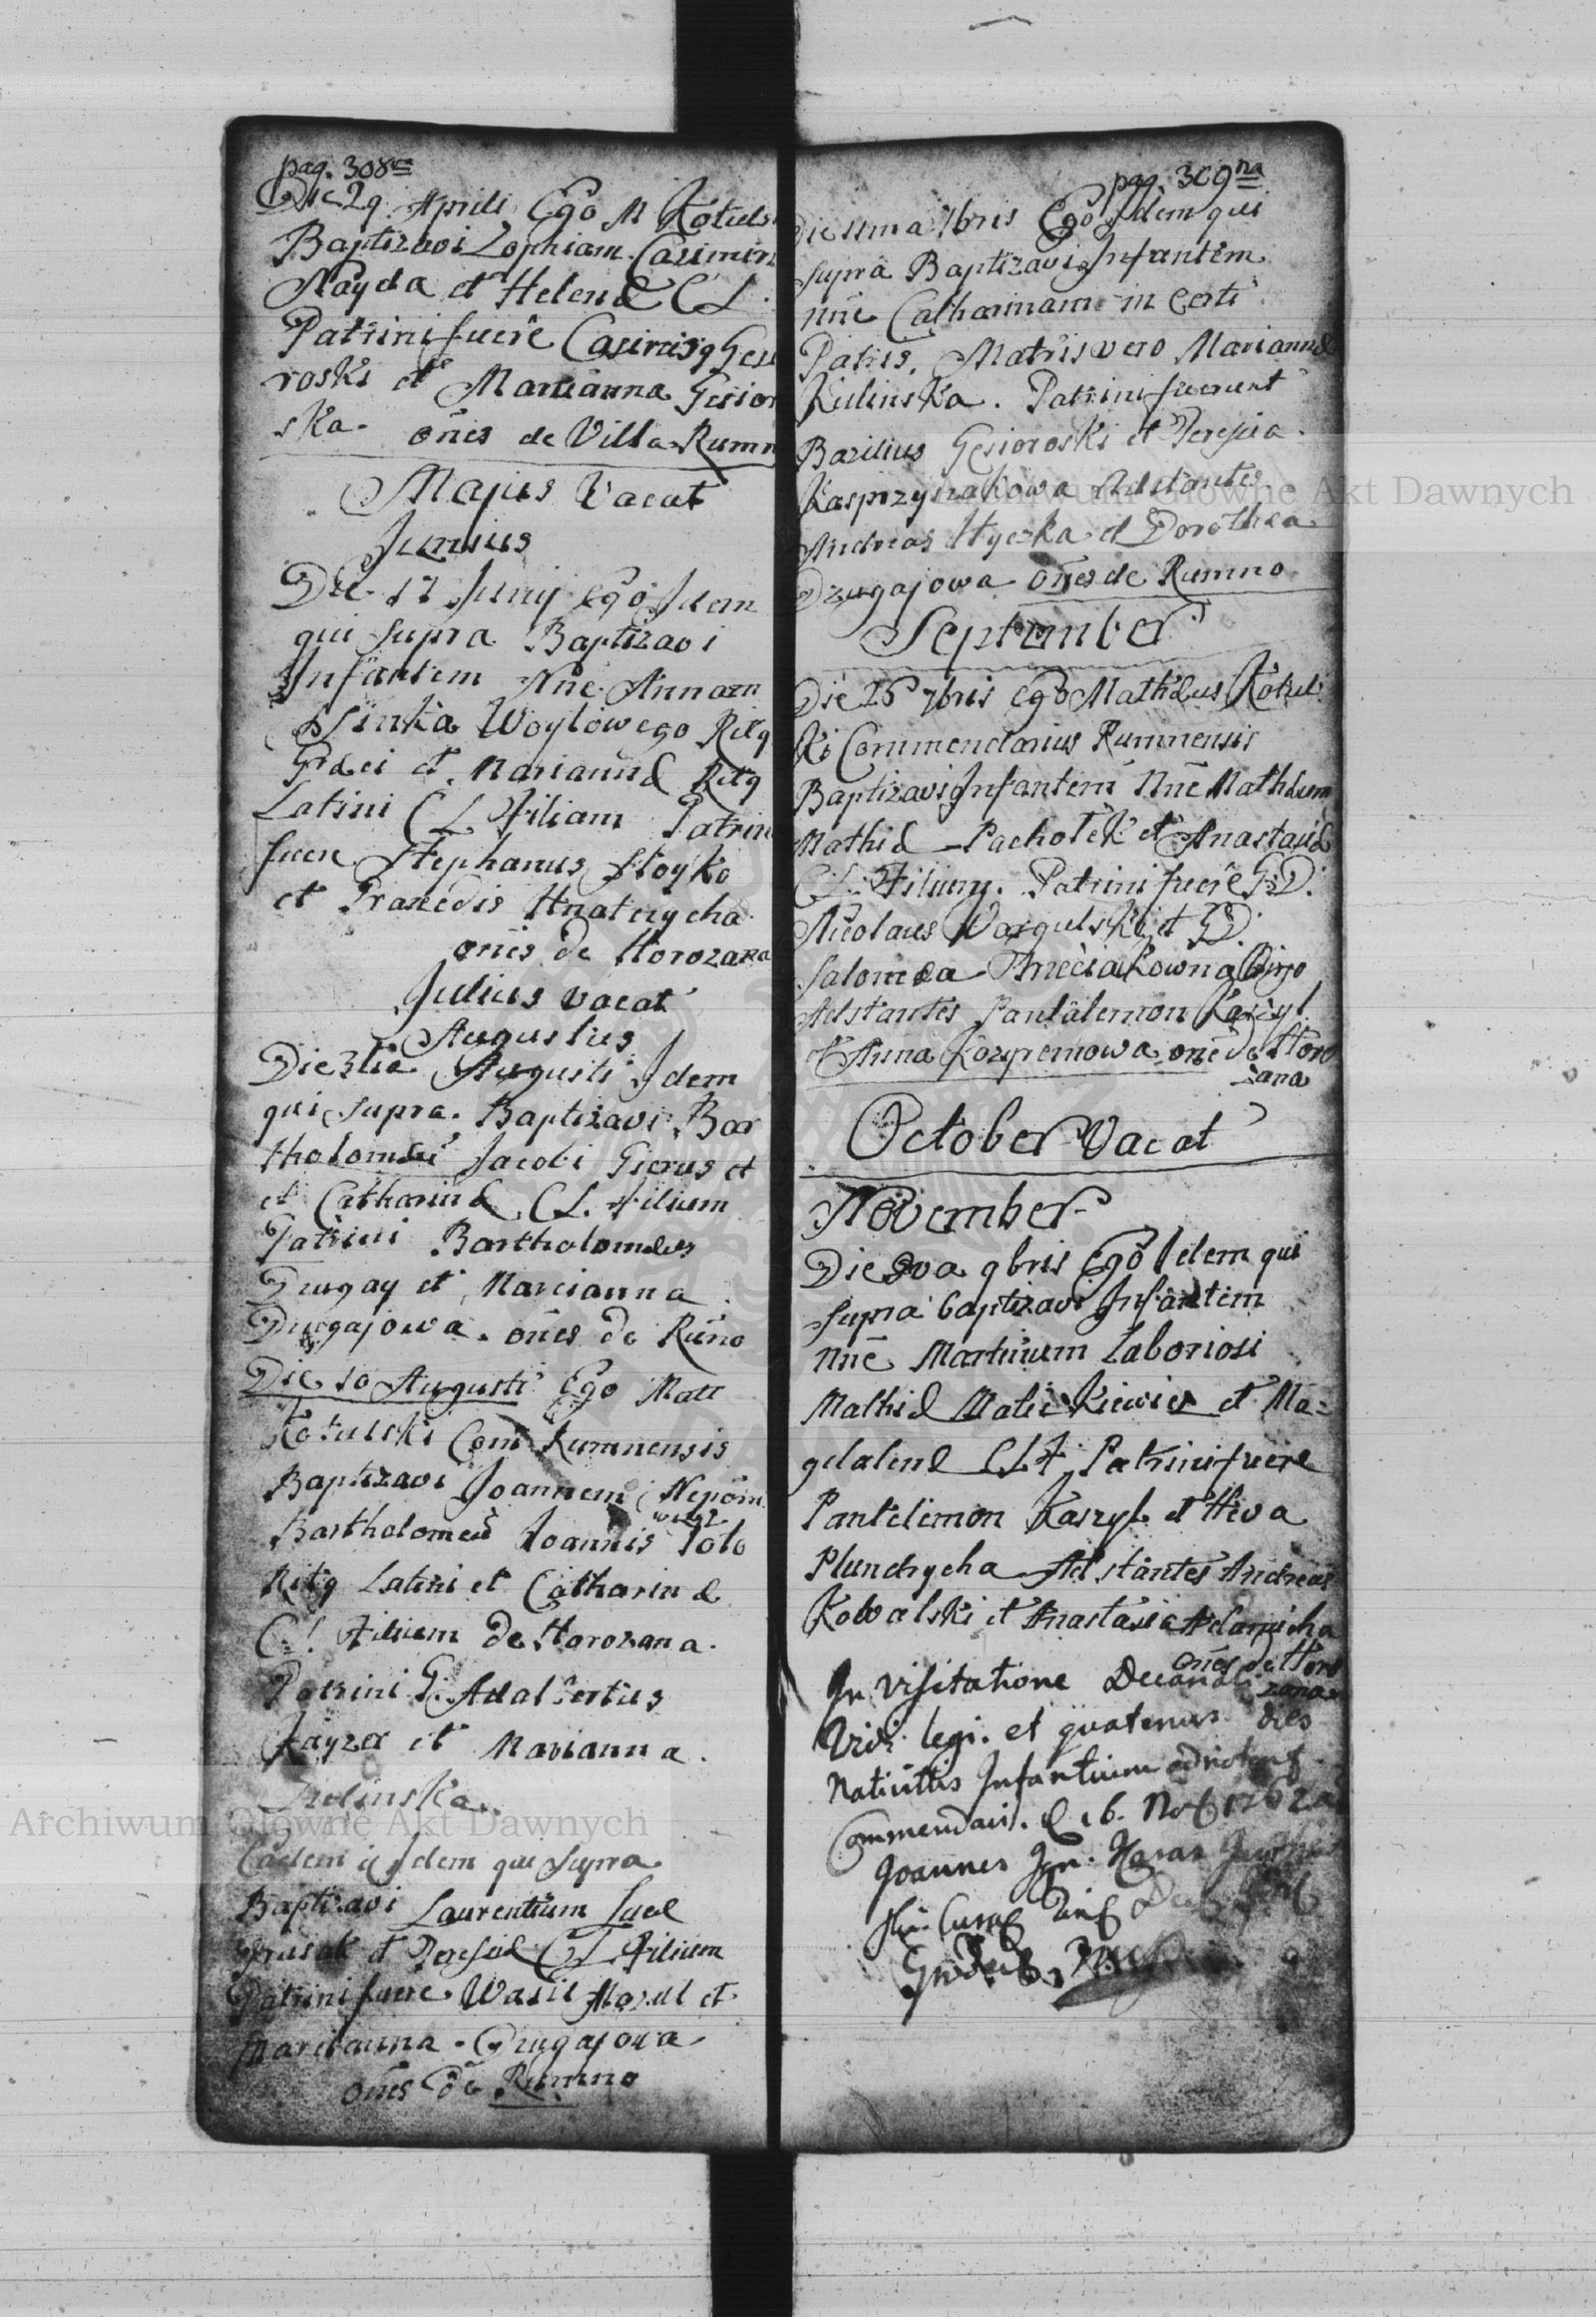 pag. 308va
Die 29 Aprilis Ego M Kotuls
Baptizavi Zophiam Casimiri
Nayda et Helenæ CL.
Patrini fuere Casimirg Gesi
roski et Marianna Gesior
ska. oñes de Villa Rumn
Majus Vacat
Junius
Die 17 Junij Ego Idem
qui supra Baptizavi
Infantem Nñe Annam
Woytowego Ritg
Græci et Mariannæ Ritg
Latini CL Filiam Patrin
fuere Stephanus Stoyko
et Praxedis Hnatczycha
oñes de Horozana
Julius vacat
Augustus
Die 3tia Augusti Idem
qui supra Baptizavi Bar
tholomæi Jacobi Gierus et
et Catharinæ CL. Filium
Patrini Bartholomæus
Drugay et Marianna
Drugajowa. oñes de Rum̃o
Die 10 Augusti Ego Matt
Kotulski Com Rumnensis
Baptizavi Joannem Nepom
Bartholomeũ Joannis Soło
wicz
Ritg Latini et Catharinæ
C L Filium de Horozana.
Patrini G. Adalbertus
Kayzer et Marianna
Zielinska.
Eadem Idem qui supra
Baptizavi Laurentium Lucæ
et Teresiæ CL Filium
Patrini fuere Wasil Mazul et
Marianna Drugajowa
oñes de Rumno
pag. 309na
Die 11ma 7bris Ego Idem qui
supra Baptizavi Infantem
nñe Catharinam in Certi
Patris, Matris vero Mariannæ
Kulinska. Patrini fuerunt
Bazilius Gesioroski et Teresia
Kasprzyszakowa Adstantes
Andreas Hycka et Dorothea
Drugajowa oñes de Rumno
September
Die 26 7bris Ego Mathæus Kotul
ki Commendarius Rumnensis
Baptizavi Infantem Nñe Mathæum
Mathiæ Pachołek et Anastasiæ
CL. Filium. Patrini fuere GD.
Nicolaus Wargulski et GD.
Salomea Kmeciakowna Virgo
Adstantes Pantalemon Kaszyl
et Anna Jozypemowa oñe de Horo
zana
October Vacat
November
Die 9va 9bris Ego Idem qui
supra baptizavi Infantem
nñe Martinum Laboriosi
Mathiæ Matickiewicz et Ma=
gdalenæ CLF Patrini fuere
Pantelimon Kaszyl et Heva
Plundrycha Adstantes Andreas
Kowalski et Anastasia Adamicha
oñes de Horo
zana
In visitatione Decanali
Vidi legi. et quatenus dies
Nativittis Infantium adnotent
Commendavi. D 16. Nob 1762 a
Joannes Ign.